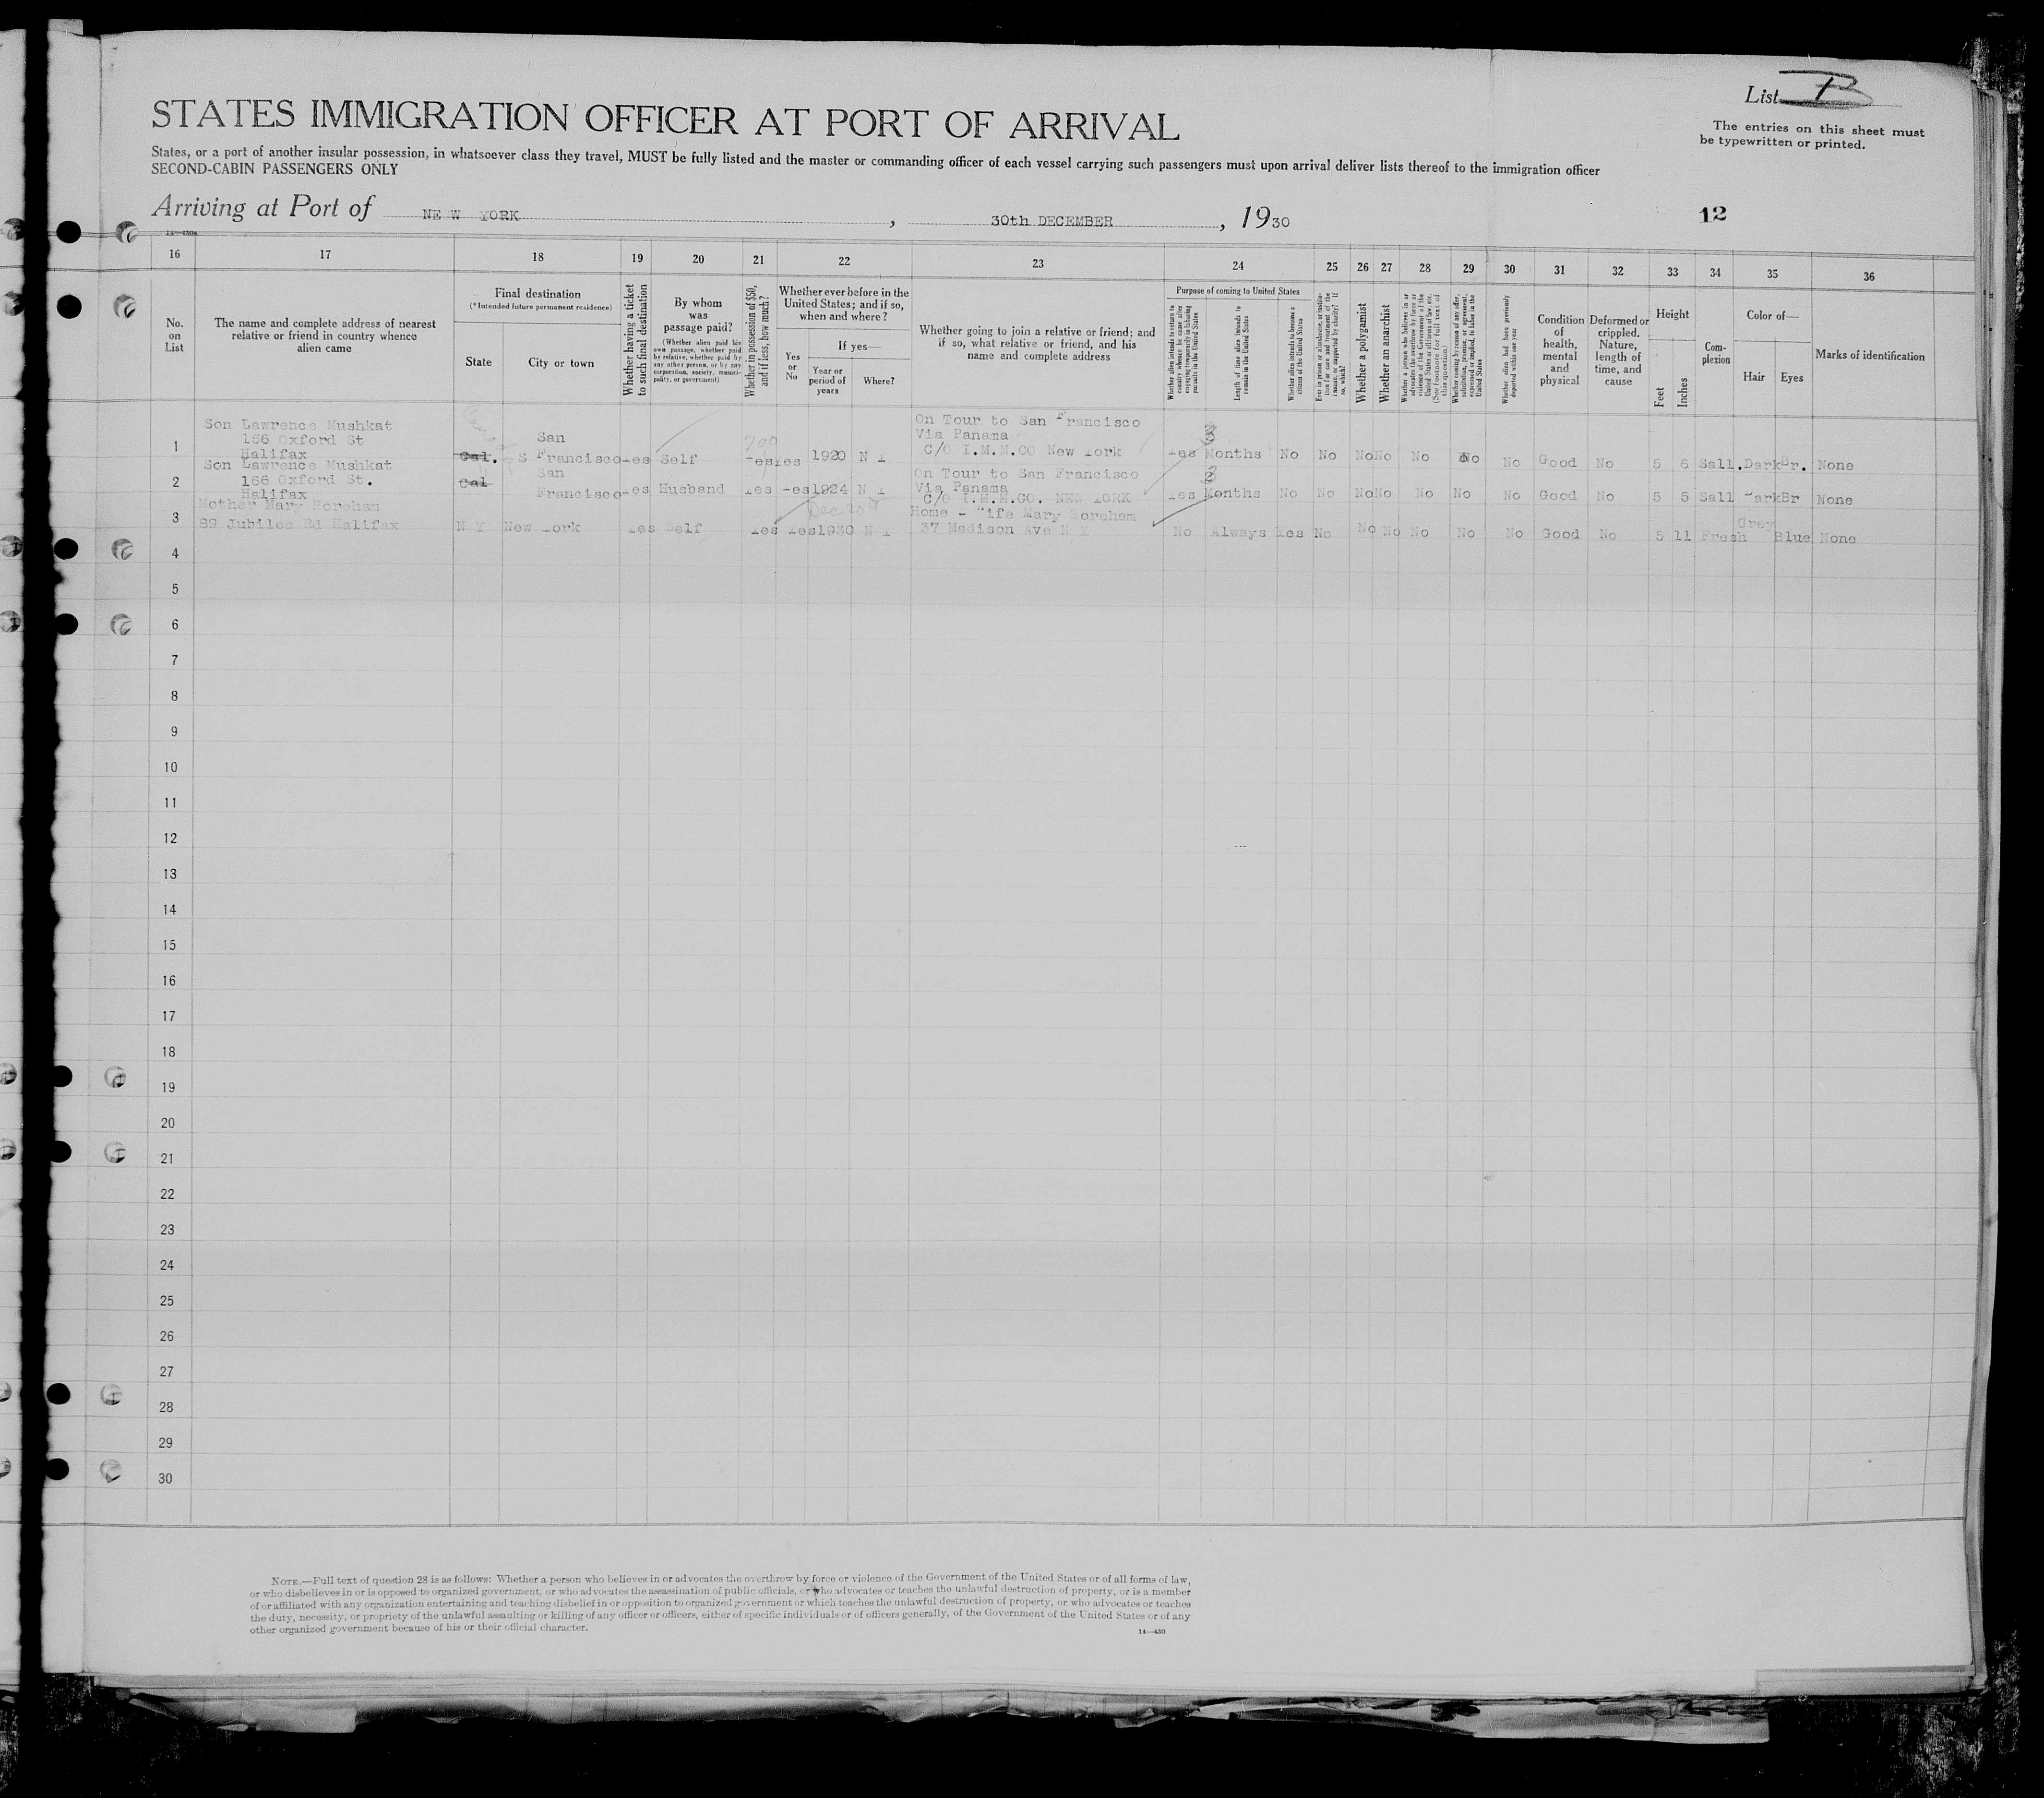 List 1
The entries on this sheet must
be typewritten or printed.
STATES IMMIGRATION OFFICER AT PORT OF ARRIVAL
States, or a port of another insular possession, in whatsoever class they travel, MUST be fully listed and the master or commanding officer of each vessel carrying such passengers must upon arrival deliver lists thereof to the immigration officer
SECOND-CABIN PASSENGERS ONLY
Arriving at Port of NEW YORK, 30th DECEMBER, 1930
12
16 17 18 19 20 21 22 23 24 25 26 27 28 29 30 31 32 33 34 35 36
No. on List
The name and complete address of nearest relative or friend in country whence alien came
Final destination
(*Intended future permanent residence)
State
City or town
Whether having a ticket to such final destination
By whom was passage paid?
(Whether alien paid his own passage, whether paid by relative, whether paid by any other person, or by any corporation, society, municipality, or government)
Whether in possession of $50, and if less, how much?
Whether ever before in the United States; and if so, when and where?
Yes or No
If yes—
Year or period of years
Where?
Whether going to join a relative or friend; and if so, what relative or friend, and his name and complete address
Purpose of coming to United States
Whether alien intends to return to country whence he came after engaging temporarily in laboring pursuits in the United States
Length of time alien intends to remain in the United States
Whether alien intends to become a citizen of the United States
Ever in prison or almshouse, or institution for care and treatment of the insane, or supported by charity? If so, which?
Whether a polygamist
Whether an anarchist
Whether a person who believes in or advocates the overthrow by force or violence of the Government of the United States or all forms of law, etc. (See footnote for full text of this question)
Whether coming by reason of any offer, solicitation, promise, or agreement, expressed or implied, to labor in the United States
Whether alien had been previously deported within one year
Condition of health, mental and physical
Deformed or crippled. Nature, length of time, and cause
Height
Feet
Inches
Complexion
Color of—
Hair
Eyes
Marks of identification
1 Son Lawrence Mushkat 166 Oxford St Halifax Cal. San Francisco Yes Self 200 Yes Yes 1920 N Y On Tour to San Francisco Via Panama C/O I.M.M.CO New York Yes 3 Months No No No No No No No Good No 5 6 Sall. Dark Br. None
2 Son Lawrence Mushkat 166 Oxford St. Halifax Cal San Francisco Yes Husband Yes Yes 1924 N Y On Tour to San Francisco Via Panama C/O I.M.M.CO. NEW YORK Yes 3 Months No No No No No No No Good No 5 5 Sall Dark Br None
3 Mother Mary Boreham 89 Jubilee Rd Halifax N Y New York Yes Self Yes Yes 1930 N Y Home - Wife Mary Boreham 37 Madison Ave N Y No Always Yes No No No No No No Good No 5 11 Fresh Grey Blue None
4
5
6
7
8
9
10
11
12
13
14
15
16
17
18
19
20
21
22
23
24
25
26
27
28
29
30
NOTE.—Full text of question 28 is as follows: Whether a person who believes in or advocates the overthrow by force or violence of the Government of the United States or of all forms of law,
or who disbelieves in or is opposed to organized government, or who advocates the assassination of public officials, or who advocates or teaches the unlawful destruction of property, or is a member
of or affiliated with any organization entertaining and teaching disbelief in or opposition to organized government or which teaches the unlawful destruction of property, or who advocates or teaches
the duty, necessity, or propriety of the unlawful assaulting or killing of any officer or officers, either of specific individuals or of officers generally, of the Government of the United States or of any
other organized government because of his or their official character.
14—430